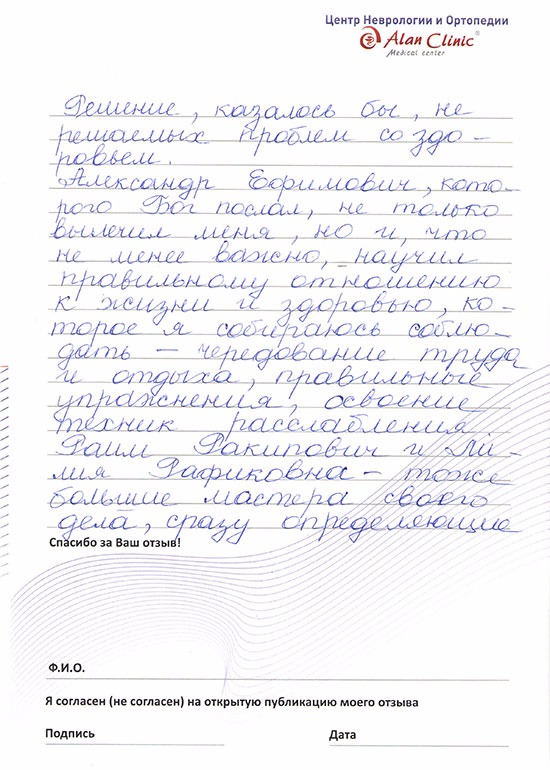 Центр Неврологии и Ортопедии
Alan Clinic®
Medical center
Решение, казалось бы, не
решаемых проблем со здо-
ровьем.
Александр Ефимович, кото-
рого Бог послал, не только
вылечил меня, но и, что
не менее важно, научил
правильному отношению
к жизни и здоровью, ко-
торое я собираюсь соблю-
дать – чередование труда
и отдыха, правильные
упражнения, освоение
техник расслабления
Раим Ракипович и Ли-
лия Рафиковна – тоже
большие мастера своего
дела, сразу определяющие
Спасибо за Ваш отзыв!
Ф.И.О.
Я согласен (не согласен) на открытую публикацию моего отзыва
Подпись
Дата